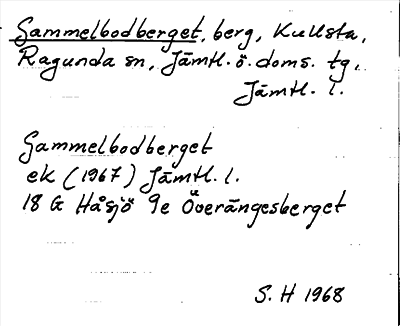 Gammelbodberget, berg, Kullsta,
Ragunda sn, Jämtl. ö. doms. tg,
Jämtl. l.
Gammelbodberget
ek (1967) Jämtl. l.
18 G Håsjö 9e Överängesberget
S. H 1968